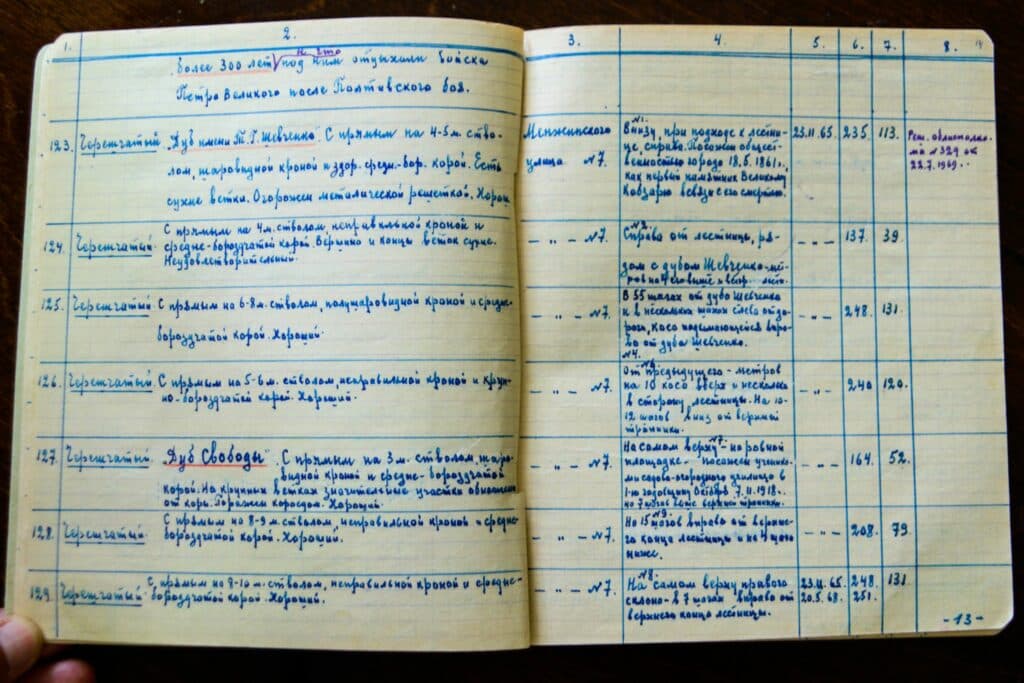 1. 2. 3. 4. 5. 6. 7. 8.
и что
более 300 лет под ним отдыхали войска
Петра Великого после Полтавского боя.
123. Черешчатый. „Дуб имени Т. Г. Шевченко". С прямым на 4-5 м. ство-
лом, шаровидной кроной и здор. средн.-бор. корой. Есть
сухие ветки. Огорожен металической решеткой. Хорош
Менжинского
улица №7.
№1.
Внизу, при подходе к лестни-
це, справа. Посажен общест-
венностью города 18.5.1861 г.
как первый памятник Великому
Кобзарю в связи с его смертью.
23.11.65. 235. 113.
Реш. облисполко-
ма №329 от
22.7.1969.
124. Черешчатый. С прямым на 4 м. стволом, неправильной кроной и
средне-бороздчатой корой. Вершина и концы веток сухие.
Неудовлетворительный.
— „ — №7.
№2.
Справа от лестницы, ря-
дом с дубом Шевченко - мет-
ров на
— „ — 137. 39.
125. Черешчатый. С прямым на 6-8 м. стволом, полушаровидной кроной и средне-
бороздчатой корой. Хороший.
— „ — №7.
В 55 шагах от дуба Шевченко
и в нескольких шагах слева от до-
роги, косо поднимающейся впра-
во от дуба Шевченко.
— „ — 248. 131.
126. Черешчатый. С прямым на 5-6 м. стволом, неправильной кроной и круп-
но-бороздчатой корой. Хороший.
— „ — №7.
№4.
От предыдущего - метров
на 10 косо вверх и несколько
в сторону лестницы. На 10-
12 шагов вниз от верхней
тропинки.
— „ — 240 120.
127. Черешчатый. „Дуб Свободы". С прямым на 3 м. стволом, шаро-
видной кроной и средне-бороздчатой
корой. На крупных ветках значительные участки обнажены
от коры. Поражен короедом. Хороший.
— „ — №7.
№7.
На самом верху - на ровной
площадке - посажен ученика-
ми садово-огородного училища в
1-ю годовщину Октября 7.11.1918 г.
на 7 шагов выше верхней тропинки.
— „ — 164. 52.
128. Черешчатый. С прямым на 8-9 м. стволом, неправильной кроной и средне-
бороздчатой корой. Хороший.
— „ — №7.
№9.
На 15 шагов вправо от верхне-
го конца лестницы и на 4 шага
ниже.
— „ — 208. 79.
129. Черешчатый. С прямым на 9-10 м. стволом, неправильной кроной и средне-
бороздчатой корой. Хороший.
— „ — №7.
№8.
На самом верху правого
склона - в 7 шагах вправо от
верхнего конца лестницы.
23.11.65. 248. 131.
20.5.68. 251.
-13-